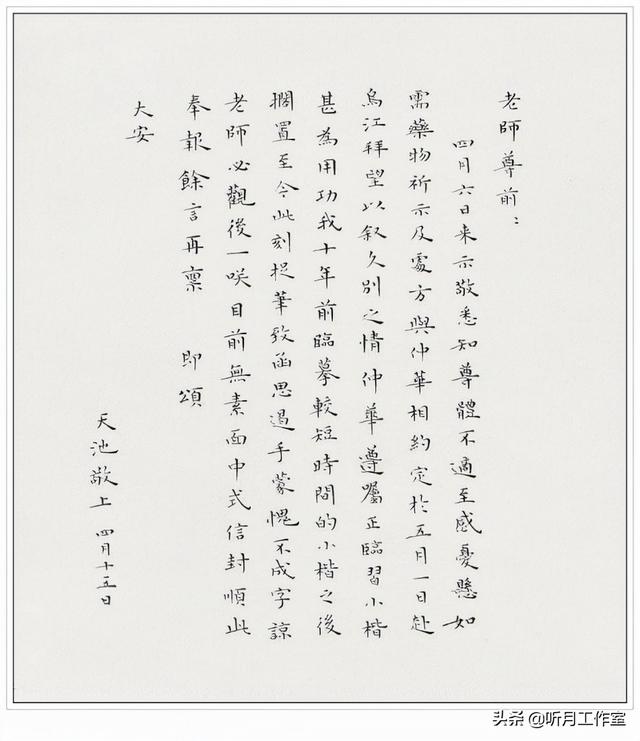 老師尊前：
四月六日来示敬悉知尊體不適至感憂懸如
需藥物祈示及處方與仲華相約定於五月一日赴
烏江拜望以叙久別之情仲華遵囑正臨習小楷
甚為用功我十年前臨摹較短時間的小楷之後
擱置至今此刻捉筆致函思過手蒙愧不成字諒
老師必觀後一咲目前無素面中式信封順此
奉報餘言再禀 即頌
大安
天池敬上 四月十五日
头条 @听月工作室